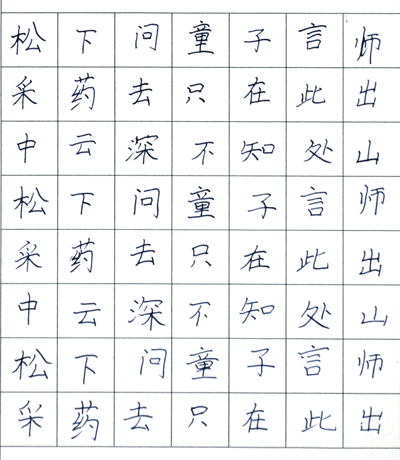 松下问童子言师
采药去只在此出
中云深不知处山
松下问童子言师
采药去只在此出
中云深不知处山
松下问童子言师
采药去只在此出